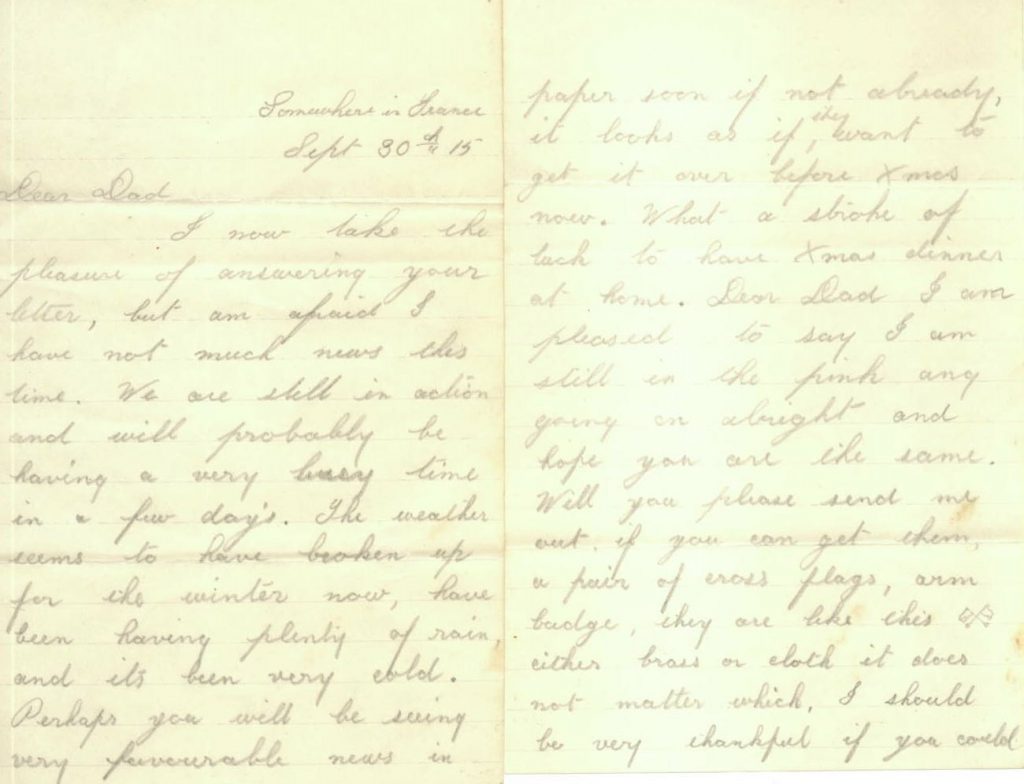 Somewhere in France
Sept 30th 15
Dear Dad
I now take the
pleasure of answering your
letter, but am afraid I
have not much news this
time. We are still in action
and will probably be
having a very busy time
in a few day's. The weather
seems to have broken up
for the winter now, have
been having plenty of rain,
and its been very cold.
Perhaps you will be seeing
very favourable news in
paper soon if not already,
it looks as if they want to
get it over before Xmas
now. What a stroke of
luck to have Xmas dinner
at home. Dear Dad I am
pleased to say I am
still in the pink and
going on alright and
hope you are the same.
Will you please send me
out, if you can get them,
a pair of cross flags, arm
badge, they are like this
either brass or cloth it does
not matter which, I should
be very thankful if you could